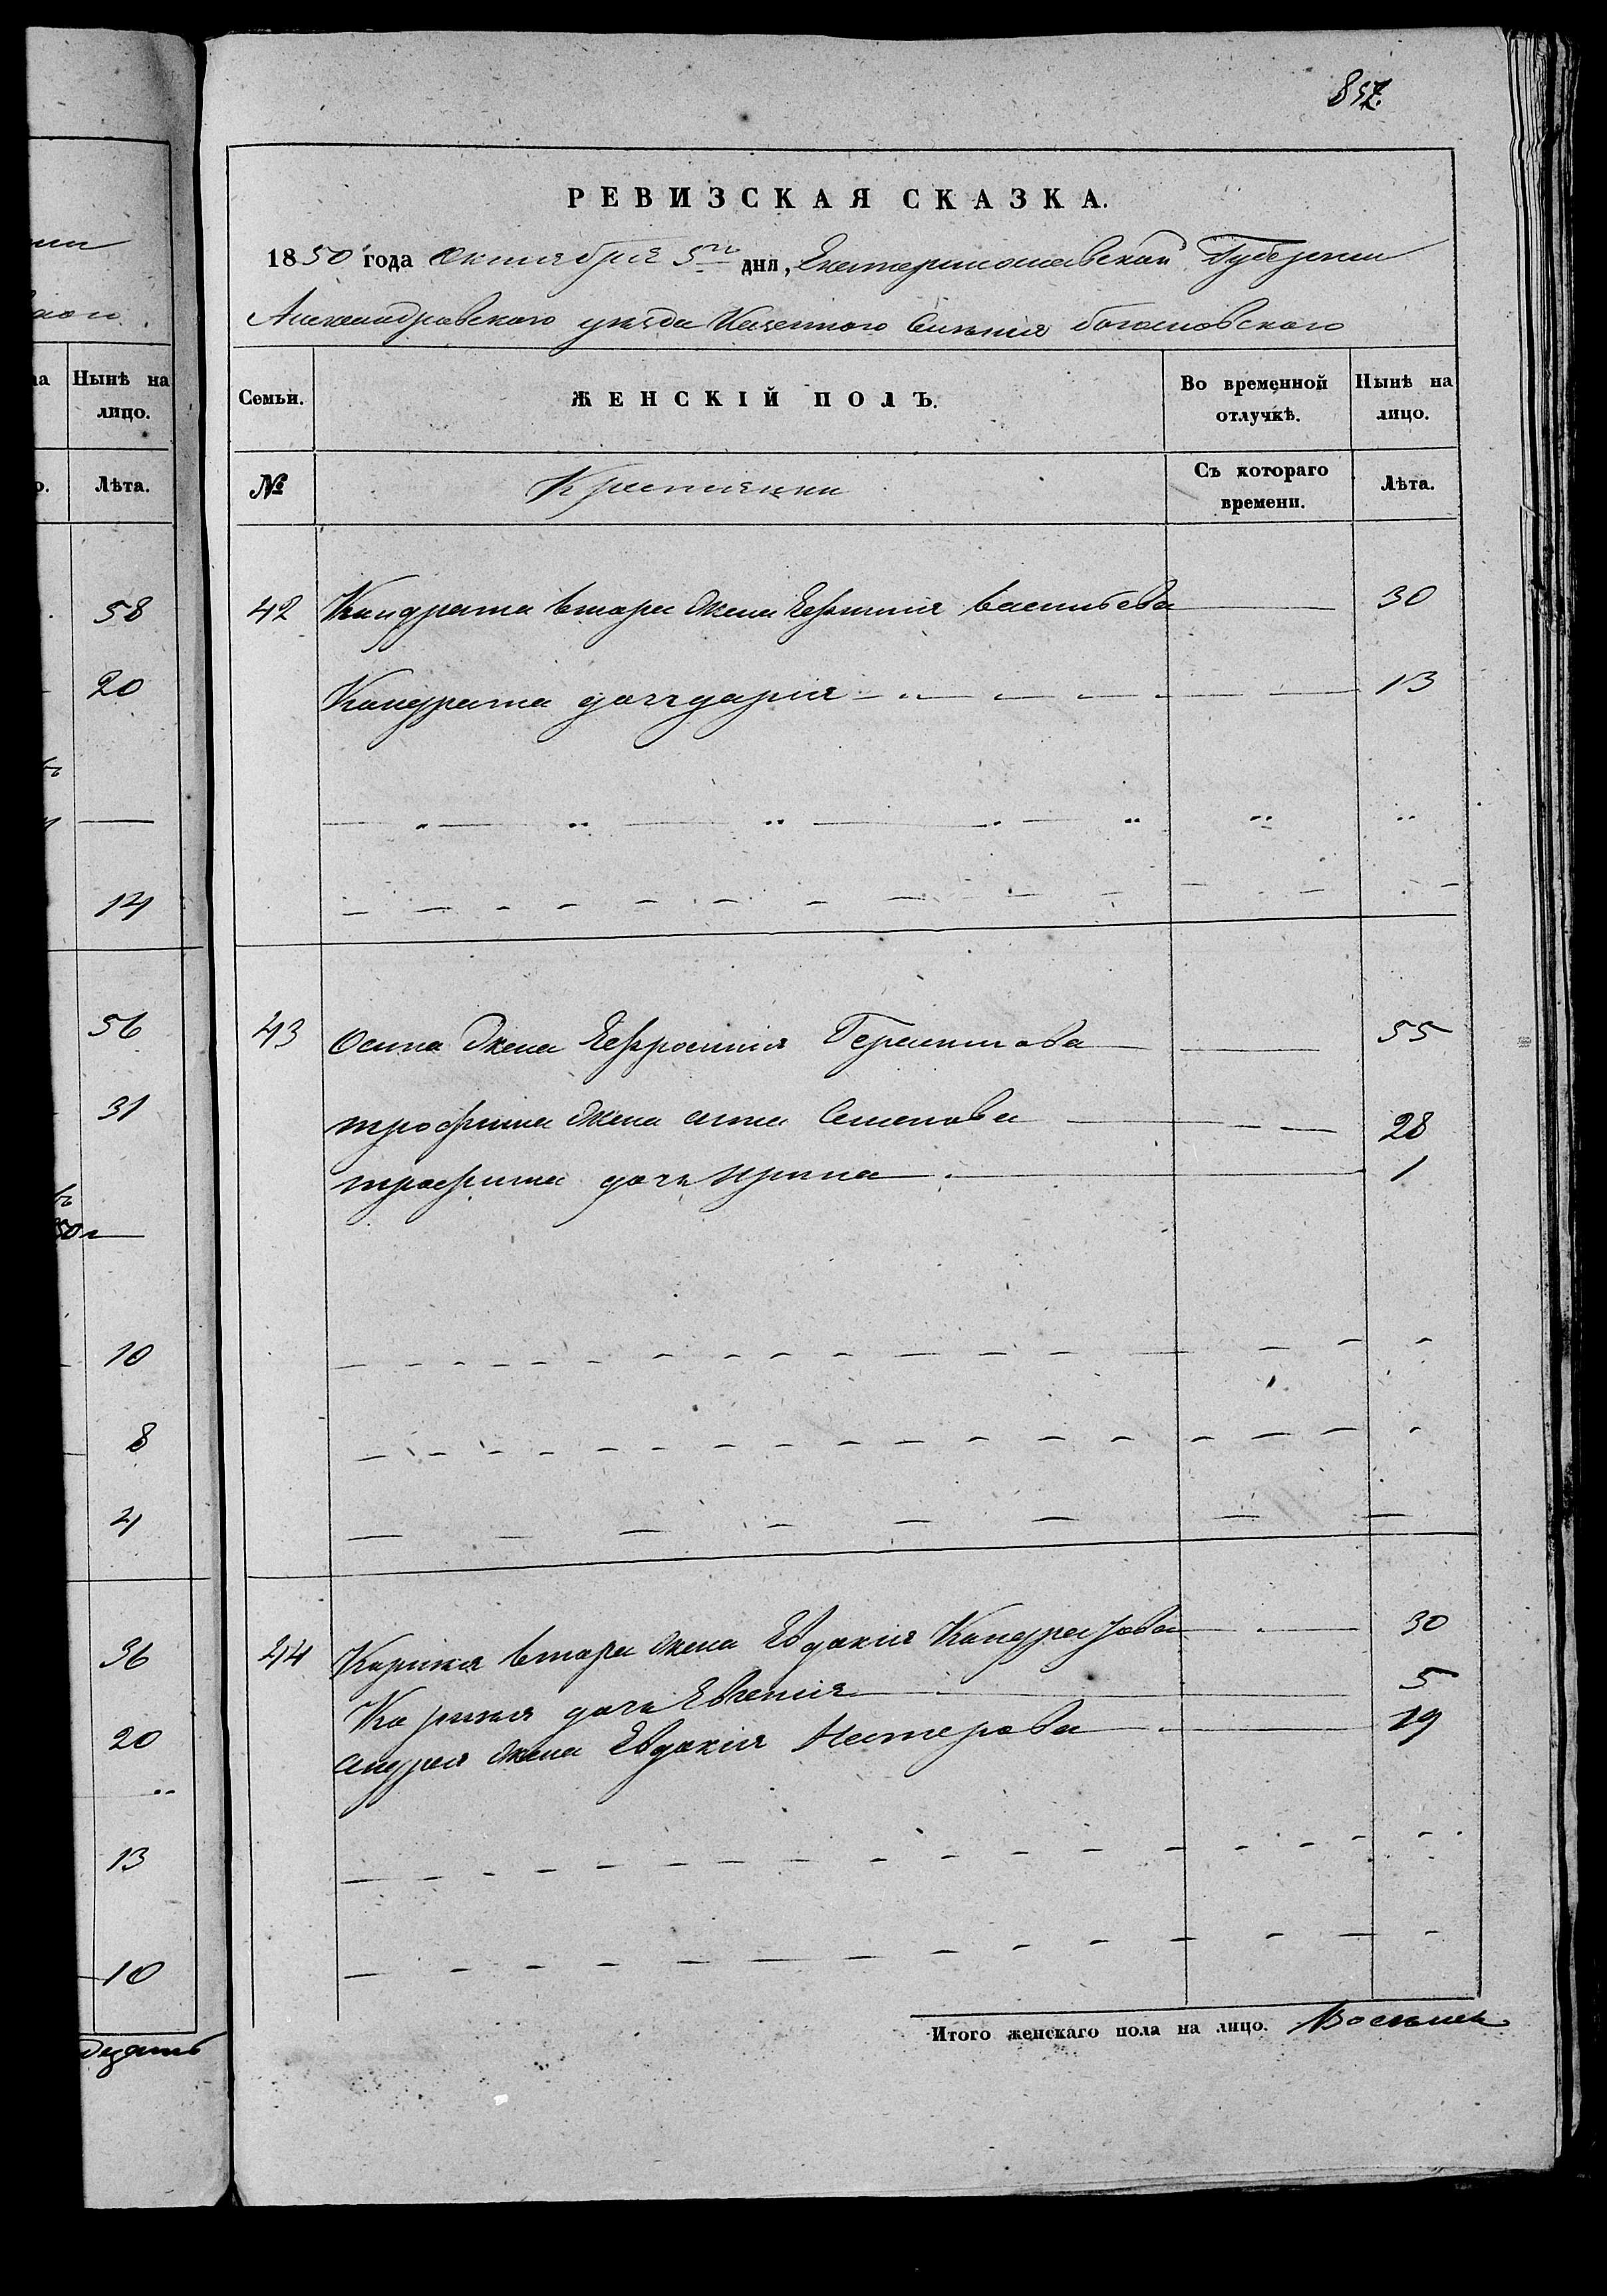 857.
нии
ского.
РЕВИЗСКАЯ СКАЗКА.
1850 года Октября 5го дня, Екатеринославской Губернии
Александровского уезда Казенного Селения
на Нынѣ на лицо.
Семьи. ЖЕНСКІЙ ПОЛЪ. Во временной отлучкѣ. Нынѣ на лицо.
о. Лѣта.
№ Крестьянки Съ котораго времени. Лѣта.
58
20
14
42 Кондрата втора жена Васильева 30
Кондрата доч дарія 13
56
31
50 г
10
8
4
43 Осипа жена Ефросинія 55
трофима жена анна Семенова 28
трофима дочь Ирина 1
36
20
13
10
дцать
44 Карпия втора жена Евдокія Кондратова 30
Карпия дочь Евгенія 5
андрея жена Евдокія Нестерова 19
Итого женскаго пола на лицо. Восемь